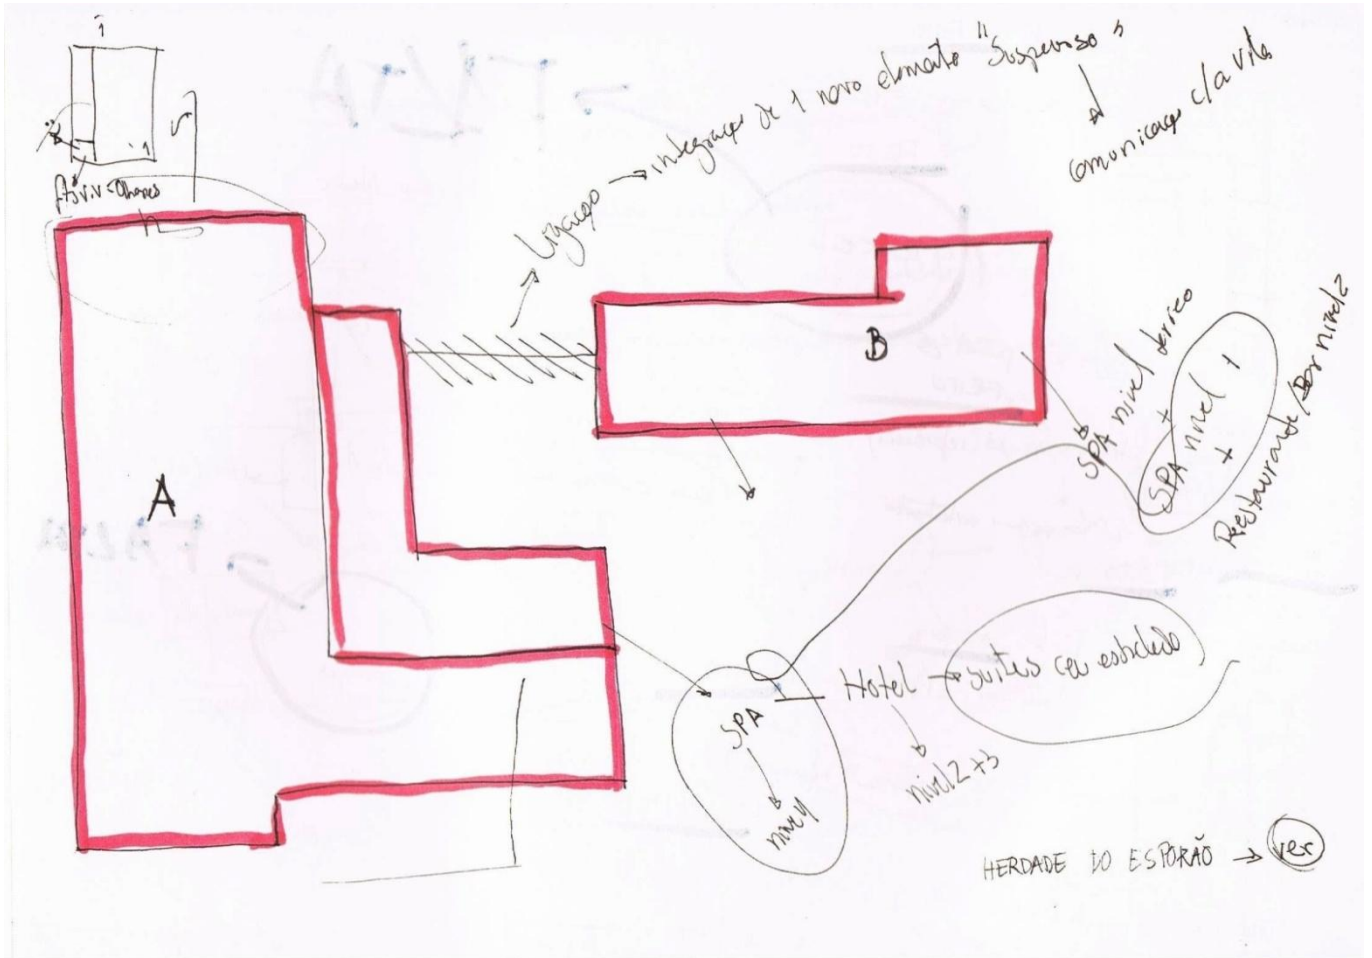 1
1
S
Ligação → integração de 1 novo elemento "Suspenso"
comunicação c/a vila
A
B
SPA nível térreo
+
SPA nível 1
+
Restaurante/Bar nível 2
SPA
Hotel → suites ceu estrelado
nível 2+3
HERDADE DO ESPORÃO → ver